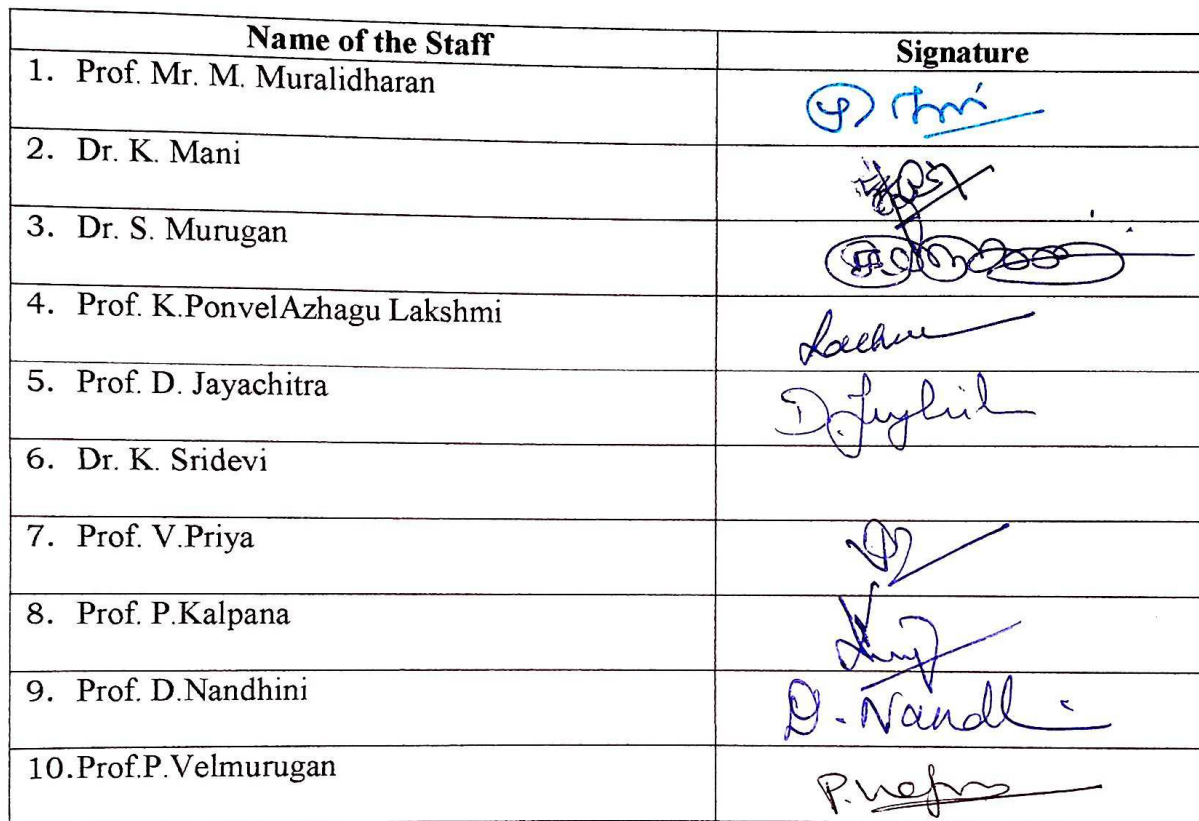 Name of the Staff Signature
1. Prof. Mr. M. Muralidharan
2. Dr. K. Mani
3. Dr. S. Murugan
4. Prof. K.PonvelAzhagu Lakshmi
5. Prof. D. Jayachitra
6. Dr. K. Sridevi
7. Prof. V.Priya
8. Prof. P.Kalpana
9. Prof. D.Nandhini
10.Prof.P.Velmurugan